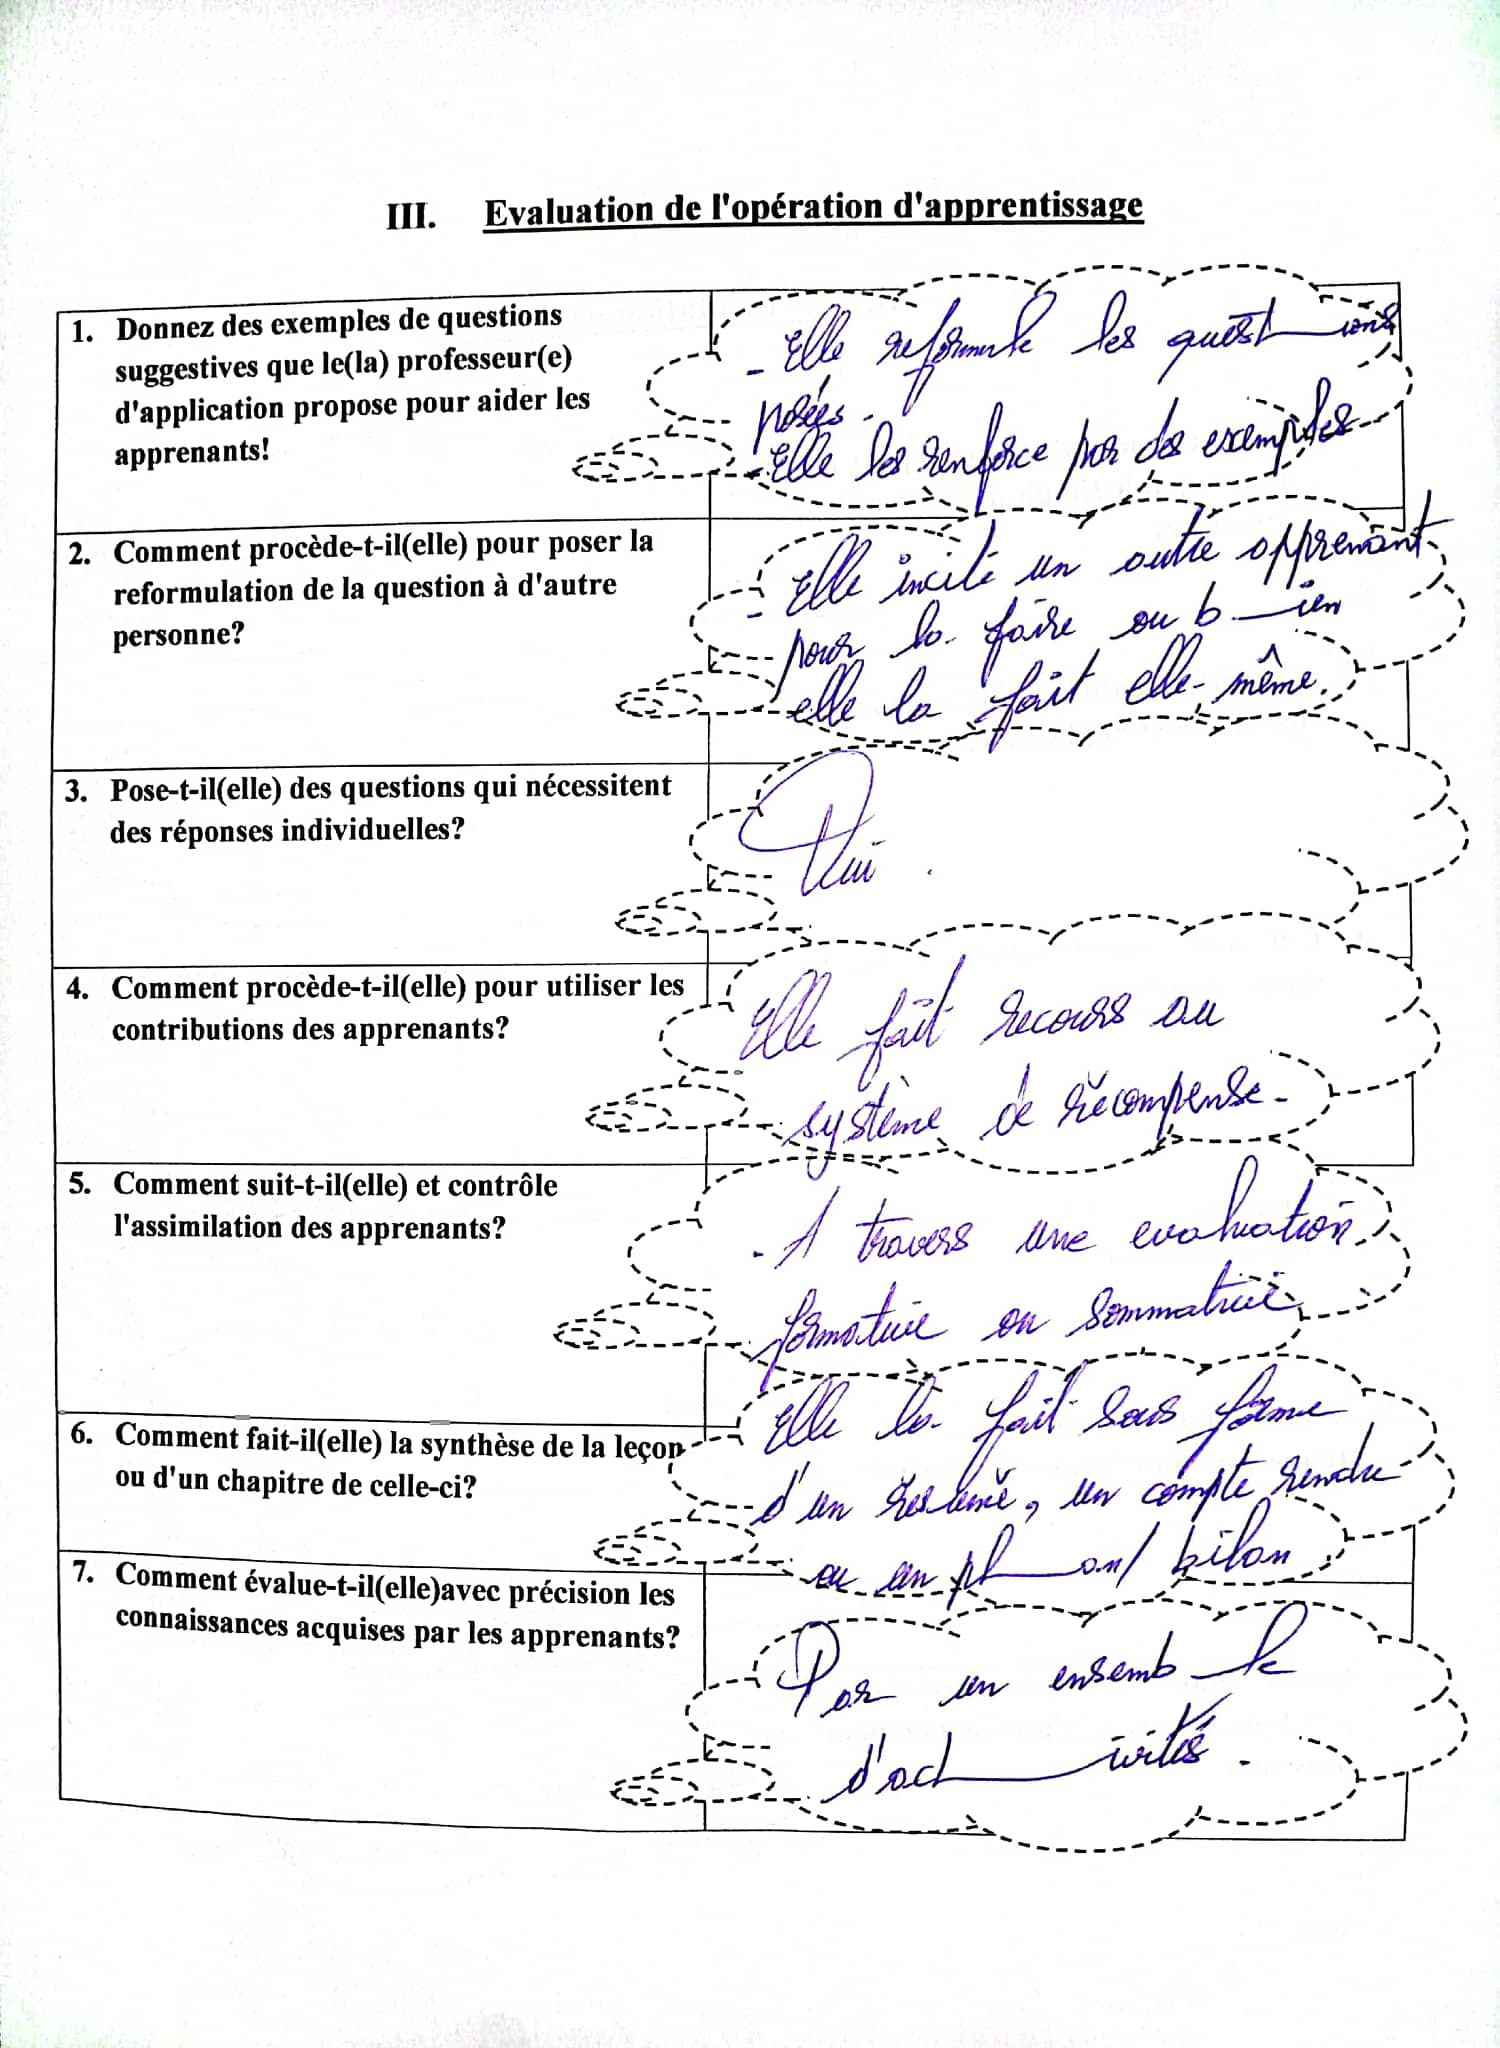 III. Evaluation de l'opération d'apprentissage
1. Donnez des exemples de questions
suggestives que le(la) professeur(e)
d'application propose pour aider les
apprenants!
- Elle reformule les questions
posées.
- Elle les renforce par des exemples
2. Comment procède-t-il(elle) pour poser la
reformulation de la question à d'autre
personne?
- Elle incite un autre apprenant
pour la faire ou bien
elle la fait elle-même.
3. Pose-t-il(elle) des questions qui nécessitent
des réponses individuelles?
Oui.
4. Comment procède-t-il(elle) pour utiliser les
contributions des apprenants?
Elle fait recours au
système de récompense.
5. Comment suit-t-il(elle) et contrôle
l'assimilation des apprenants?
- A travers une evaluation
formative ou sommative
6. Comment fait-il(elle) la synthèse de la leçon
ou d'un chapitre de celle-ci?
Elle la fait sous forme
d'un résumé, un compte rendu
ou un plan/bilan.
7. Comment évalue-t-il(elle)avec précision les
connaissances acquises par les apprenants?
Par un ensemble
d'activités.